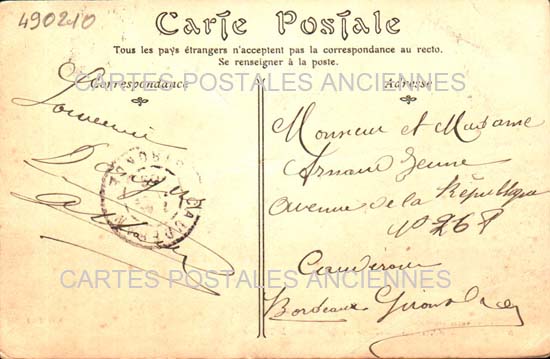 490210
Carte Postale
Tous les pays étrangers n'acceptent pas la correspondance au recto.
Se renseigner à la poste.
CARTES POSTALES ANCIENNES
Correspondance
Adresse
Souvenir
Monsieur et Madame
Arnaud Jeune
Avenue de la République
N° 267
Caudéran
Bordeaux Gironde
CARTES POSTALES ANCIENNES